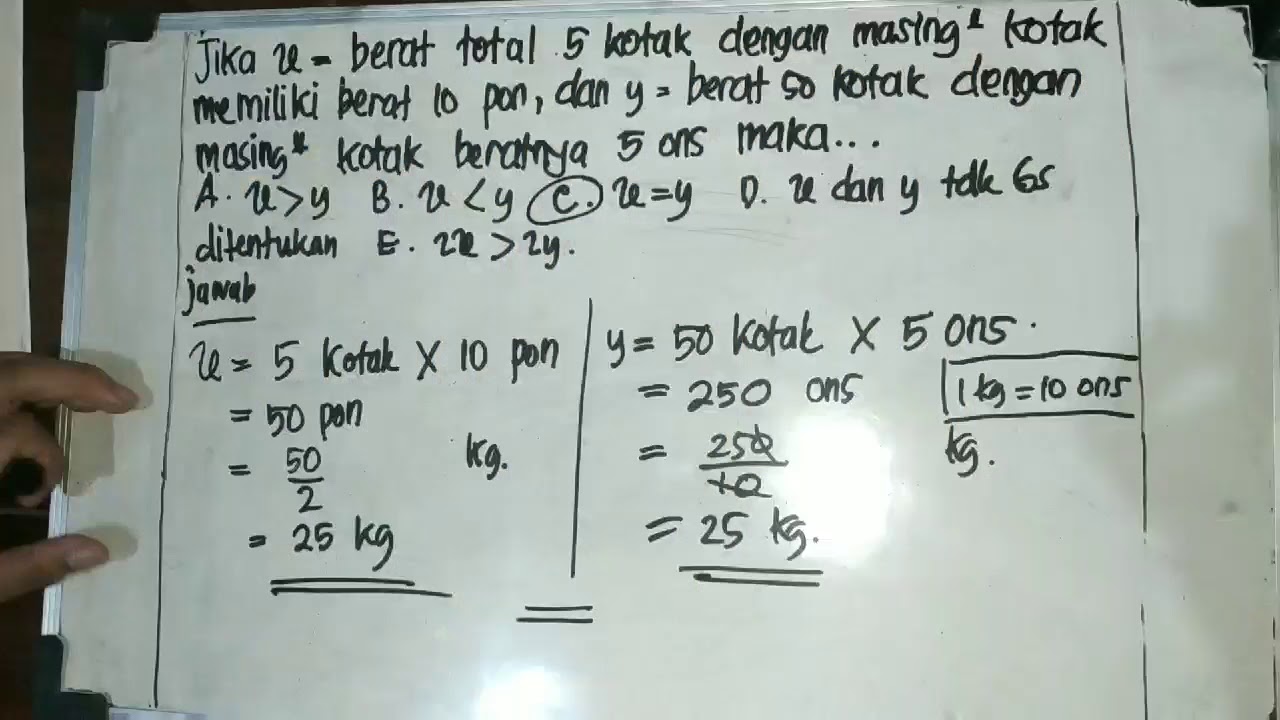 Jika x = berat total 5 kotak dengan masing² kotak
memiliki berat 10 pon, dan y = berat 50 kotak dengan
masing² kotak beratnya 5 ons maka...
A. x > y B. x < y C. x = y D. x dan y tdk bs
ditentukan E. 2x > 2y.
jawab
x = 5 kotak X 10 pon
= 50 pon
= 50/2 kg.
= 25 kg
y = 50 kotak X 5 ons.
= 250 ons
1 kg = 10 ons
= 250/10 kg.
= 25 kg.
=